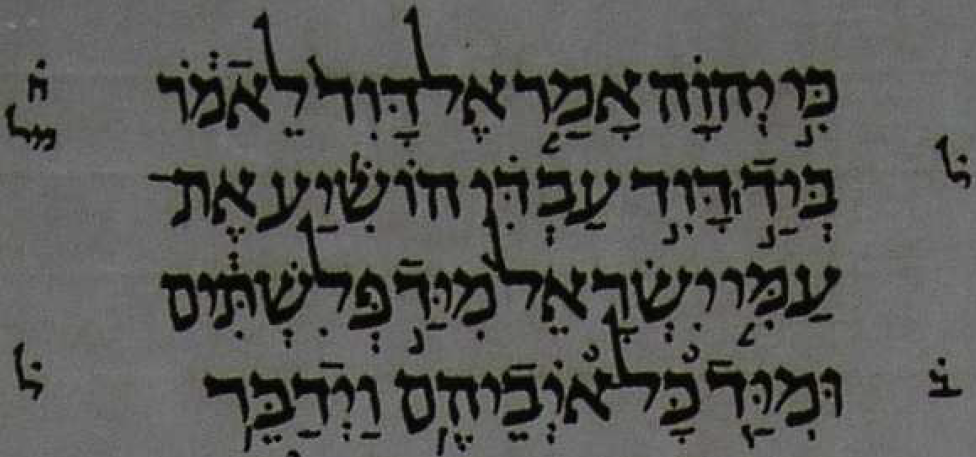 כִּי יְהוָה אָמַר אֶל דָּוִד לֵאמֹר ה̇ מל
ל̇ בְּיַד דָּוִד עַבְדִּי הוֹשִׁיעַ אֶת־
עַמִּי יִשְׂרָאֵל מִיַּד פְּלִשְׁתִּים
ב̇ וּמִיַּד כָּל אֹיְבֵיהֶם וַיְדַבֵּר ל̇